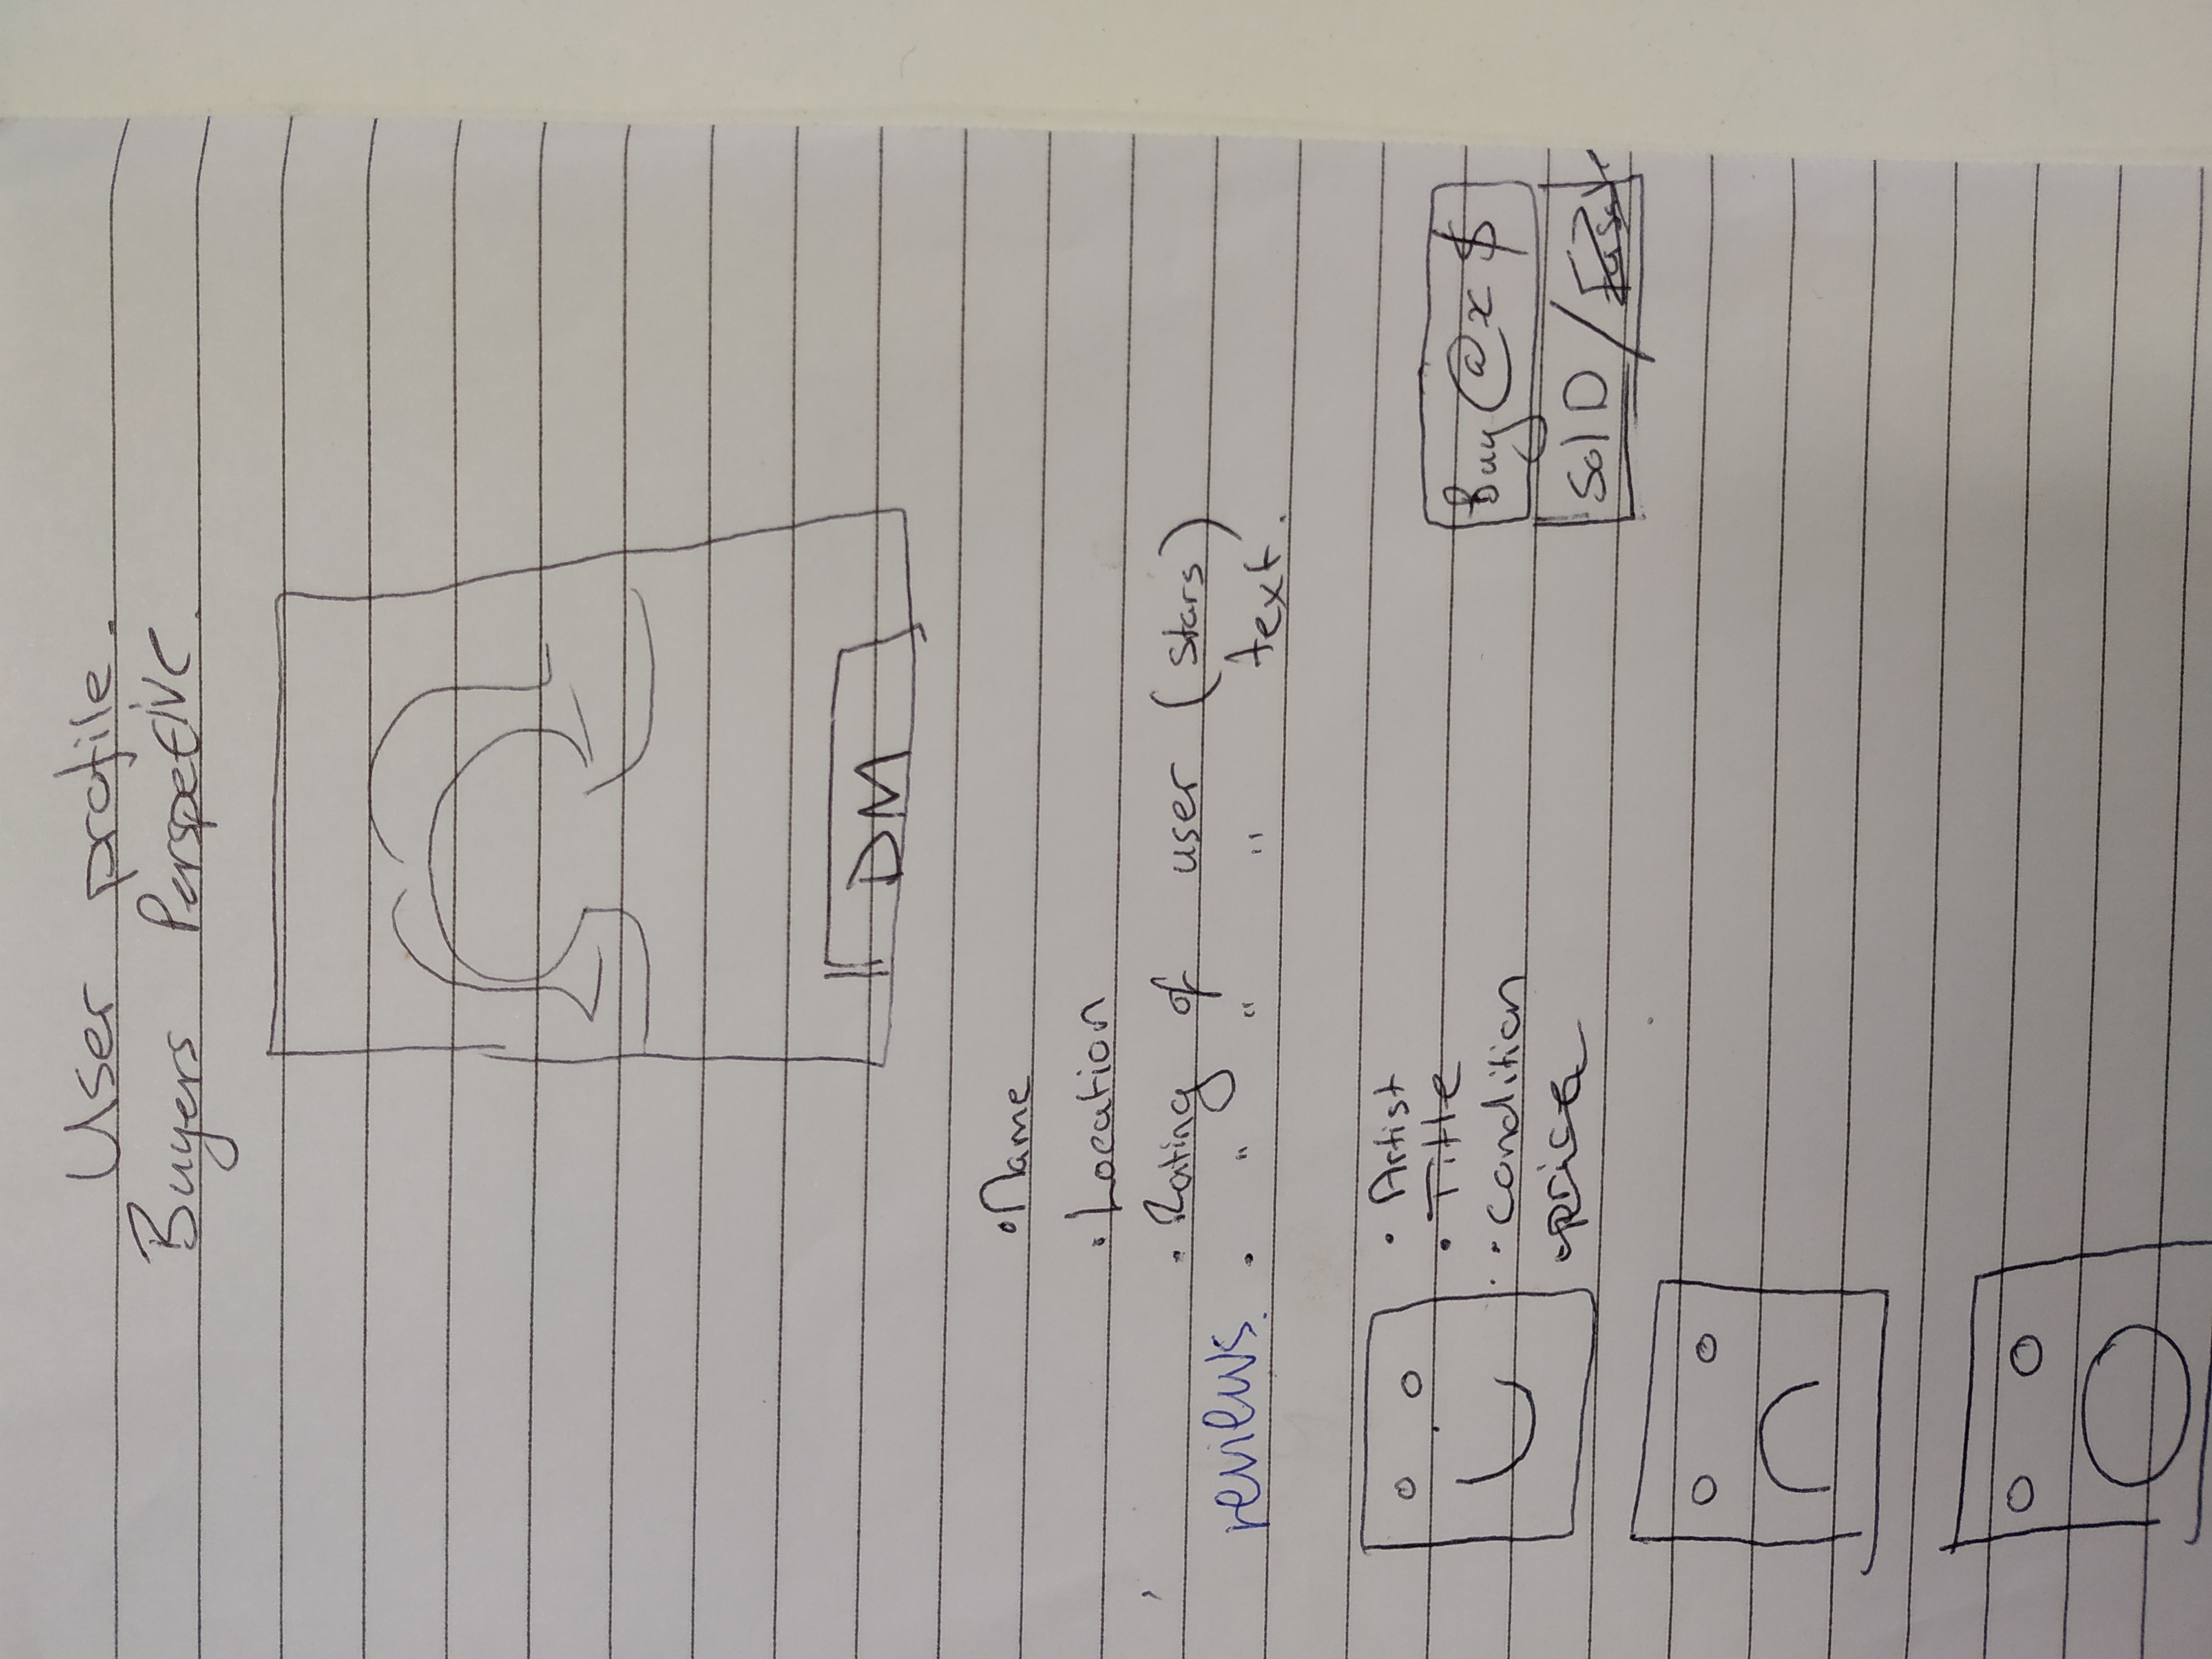 User profile.
Buyers Perspetive.
DM
• Name
• Location
• Rating of user (stars)
reviews. • " " " text.
• Artist
• Title
• Condition
• price
Buy @ x $
Sol D /